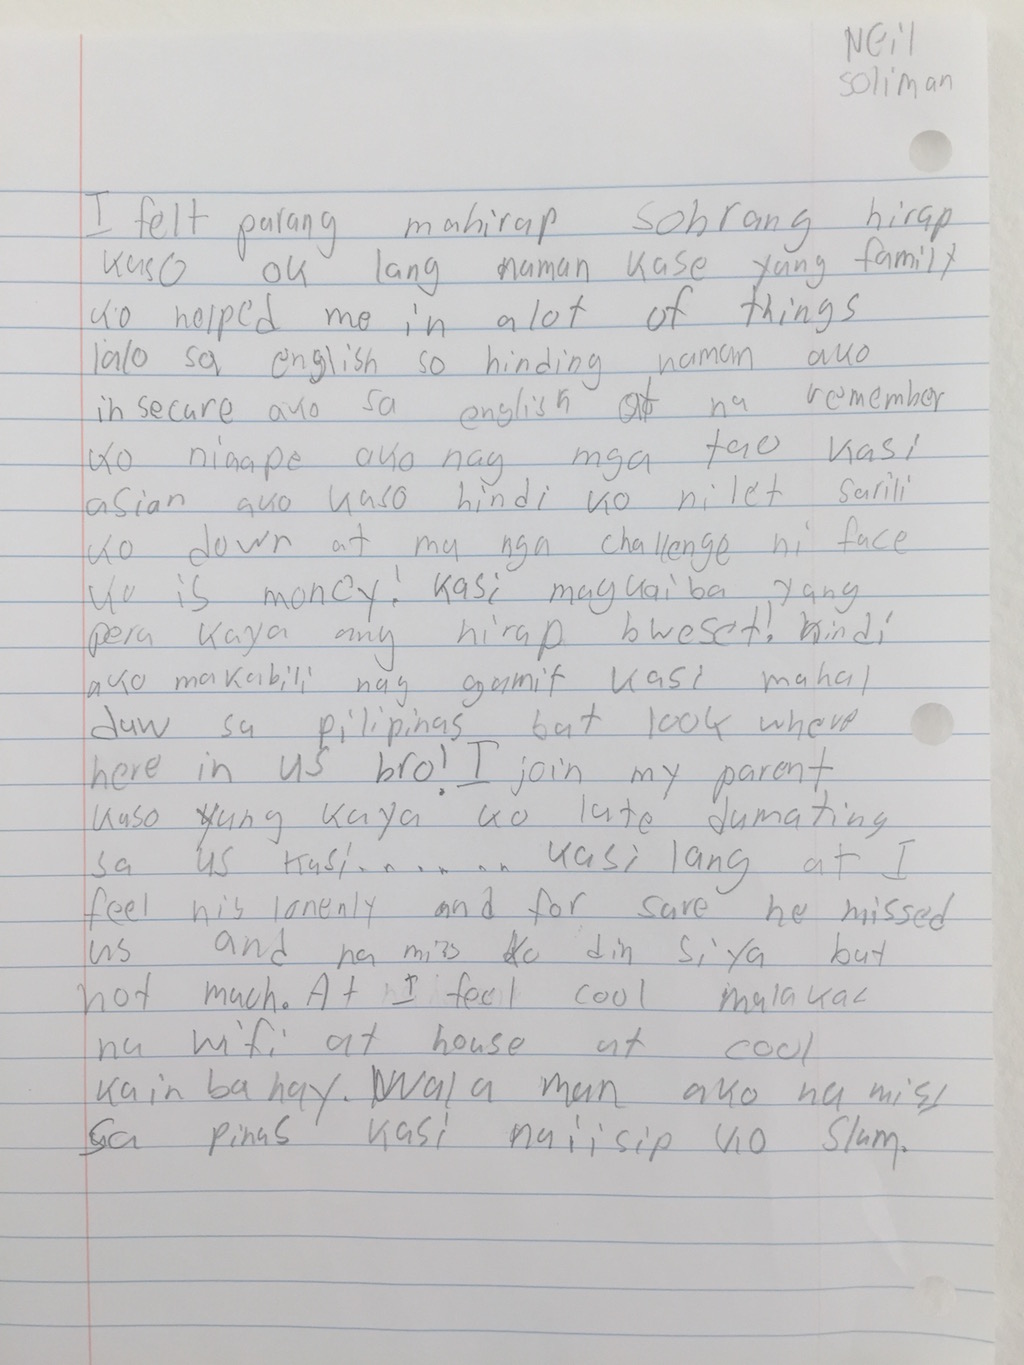 Neil
Soliman
I felt parang mahirap sobrang hirap
kaso ok lang naman kase yung family
ko helped me in alot of things
lalo sa english so hinding naman ako
insecure ako sa english at na remember
ko niaape ako nag mga tao kasi
asian ako kaso hindi ko ni let sarili
ko down at ma nga challenge ni face
ko is money! kasi magkaiba yang
pera kaya ang hirap bweset! hindi
ako makabili nag gamit kasi mahal
daw sa pilipinas but look where
here in US bro! I join my parent
kaso yung kaya ko late dumating
sa US kasi....... kasi lang at I
feel his lonenly and for sure he missed
us and na miss ko din siya but
not much. At I feel cool malakac
na wifi at house at cool
kain bahay. Wala man ako na miss
sa pinas kasi naiisip ko slam.